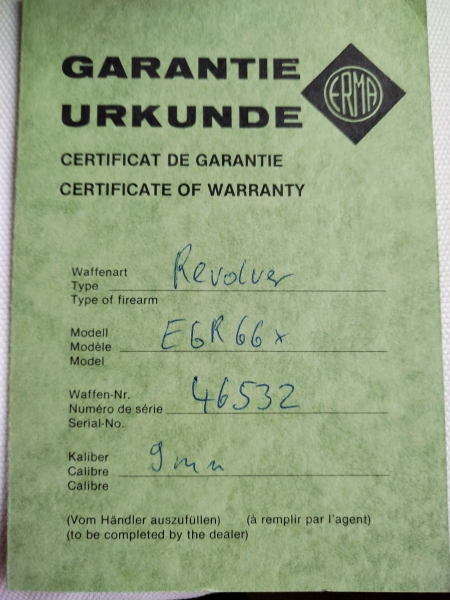 GARANTIE
URKUNDE
ERMA
CERTIFICAT DE GARANTIE
CERTIFICATE OF WARRANTY
Waffenart
Type Revolver
Type of firearm
Modell
Modèle EGR66x
Model
Waffen-Nr.
Numéro de série 46532
Serial-No.
Kaliber
Calibre 9mm
Calibre
(Vom Händler auszufüllen) (à remplir par l'agent)
(to be completed by the dealer)